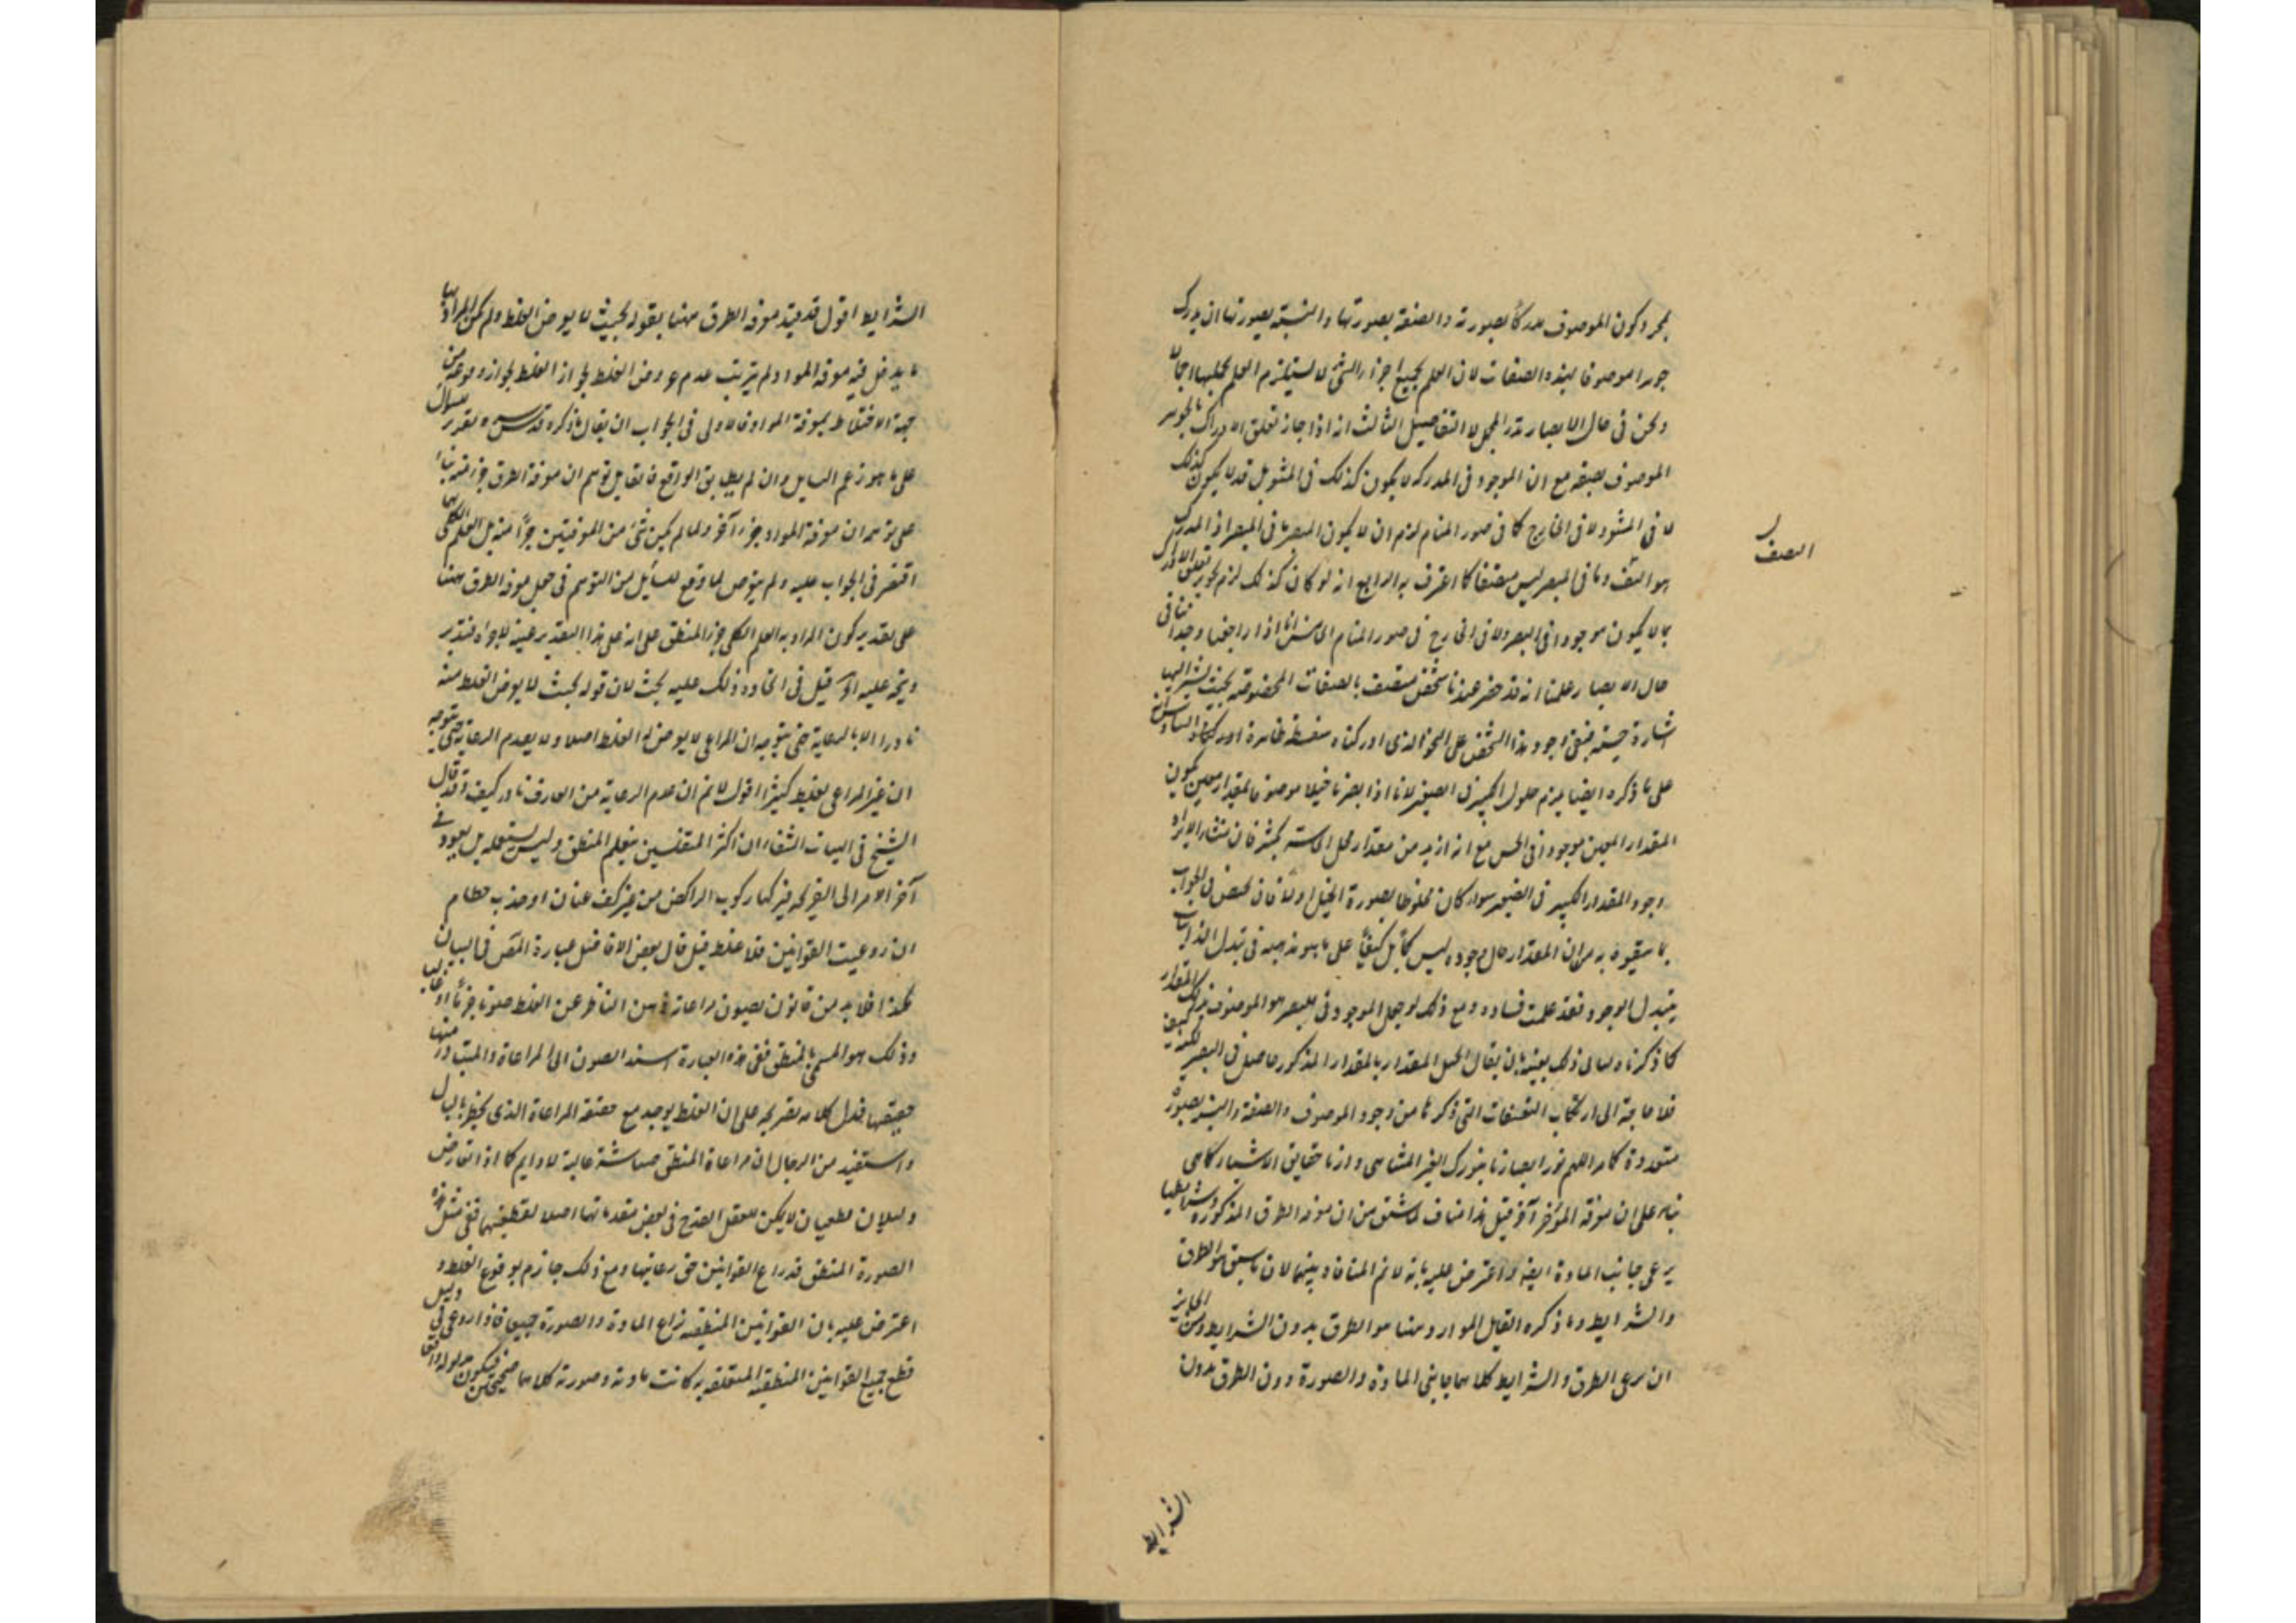 بمجرد كون الموصوف مدركا بصورته والصفة بصورتها والنسبة بصورتها ان يدرك
جوهرا موصوفا بهذه الصفات لان العلم بجميع اجزاء الشئ لا يستلزم العلم بكلها اجمالا
ونحن فى حال الابصار ندرك المجمل لا التفاصيل الثالث انه اذا جاز تعلق الادراك بالجوهر
الموصوف بصفة مع ان الموجود فى المدركة لا يكون كذلك فى المشو بل قد لا يكون كذلك
لا فى المشو ولا فى الخارج كما فى صور المنام لزم ان لا يكون المبصر ما فى المبصر اذ المدرك
هو المتصف وما فى المبصر ليس متصفا كما اعترف به الرابع انه لو كان كذلك لزم تعلق الادراك
بما لا يكون موجودا فى البصر ولا فى الخارج فى صور المنام الخامس انا اذا راجعنا وجداننا فى
حال الابصار علمنا انه قد حضر عندنا شخص متصف بالصفات المخصوصة بحيث يشير اليها
اشارة حسية فنفى وجود هذا الشخص على النحو الذى ادركناه سفسطة ظاهرة السادس انه
على ما ذكره ايضا يلزم حلول الكبير فى الصغير لانا اذا ابصرنا فيلا موصوفا بمقدار معين يكون
المقدار المعين موجودا فى الحس مع انه ازيد من مقدار محل الحاسة بكثير فان منشاء الايراد
وجود المقدار الكبير فى الصغير سواء كان مخلوطا بصورة الفيل اولا فان تمحض فى الجواب
بما سيقوه به من ان المقدار حال وجوده ليس كما بل كيفا على ما هو مذهبه فى تبدل الذاتيات
بتبدل الوجود فقد علمت فساده ومع ذلك لو جعل الموجود فى البصر هو الموصوف بذلك المقدار
كما ذكرنا ولسالى ذلك بعينه بان يقال الفيل المقدار بالمقدار المذكور حاصل فى البصر
فلا حاجة الى ارتكاب التعسفات التى ذكرنا من وجود الموصوف والصفة والنسبة بصور
متعددة كما مر اللهم نور ابصارنا بنورك الغير المتناهى وارنا حقايق الاشياء كما هى
بناء على ان معرفة المؤخر آخر قيل هذا مناف لما سبق من ان معرفة الطرق المذكورة وشرايطها
يرعى جانب المادة ايضا واعترض عليه بانه لا نم المنافاة بينهما لان ما سبق هو الطرق
والشرايط وما ذكره القايل الموارد هنا هو الطرق بدون الشرايط ومن الجايز
ان يرعى الطرق والشرايط كلاهما جانبى المادة والصورة دون الطرق بدون
الصف
الشرايط
الشرايط اقول قد قيد معرفة الطرق ههنا بقوله بحيث لا يعرض الغلط ولم يكن المراد بها
ما يدخل فيه معرفة المواد لم يترتب عدم عروض الغلط لجواز الغلط لجواز وقوعه من
جهة الاختلاط بمعرفة المواد فالاولى فى الجواب ان يقال ما ذكره قدس سره تقدير سوال
على ما هو زعم السايل وان لم يطابق الواقع فالقايل توهم ان معرفة الطرق جزء منه بناء
على توهمه ان معرفة المواد جزء آخر ولما لم يكن شئ من المعرفتين جزءا منه بل العلم الكلى بهما
اقتصر فى الجواب عليه ولم يتعرض لما وقع للسايل من التوهم فى حمل معرفة الطرق ههنا
على تقدير كون المراد به العلم الكلى جزء المنطق على انه على هذا التقدير عينه لا جزءه فتدبر
ويتجه عليه انه قيل فى اتحاده ذلك عليه بحث لان قوله بحيث لا يعرض الغلط منه
نادرا الا بالرعاية حتى يتوجه ان المراعى لا يعرض له الغلط اصلا ولا يعدم الرعاية حتى يتوجه
ان غير المراعى يغلط كثيرا اقول لا نم ان عدم الرعاية من العارف نادر كيف وقد قال
الشيخ فى الهيات الشفاء ان اكثر المتفلسفين يتعلم المنطق وليس يستعمله بل يعود فى
آخر الامر الى القريحة فيركبها ركوب الراكض من غير كف عنان او جذب حطام
ان روعيت القوانين فلا غلط قيل قال بعض الافاضل عبارة المص فى البيان
هكذا فلا بد من قانون يصون مراعاته ذهن الناظر عن الغلط صونا جزئيا او غالبا
وذلك هو المسمى بالمنطق ففى هذه العبارة اسند الصون الى المراعاة والمتبادر منها
حقيقتها فدل كلامه بصريحه على ان الغلط يوجد مع حقيقة المراعاة الذى يخطر بالبال
واستفيد من الرجال ان مراعاة المنطق صيانته غالبة لا دايم كما اذا تعارض
دليلان قطعيان لا يمكن للعقل القدح فى بعض مقدماتها اصلا لقطعيتهما ففى مثل هذه
الصورة المنطق قد راع القوانين حق رعايتها ومع ذلك جازم بوقوع الغلط و
اعترض عليه بان القوانين المنطقية تراعى المادة والصورة جميعا فاذا روعى فى دليل
قطع جميع القوانين المنطقية المتعلقة به كانت مادته وصورته كلاهما صحيحين فيكون مدلوله واقعا